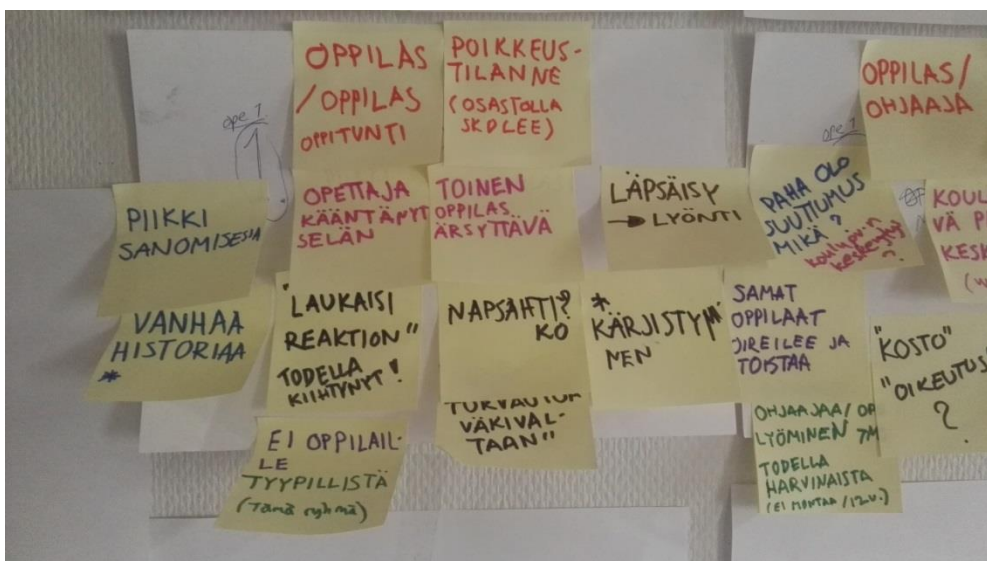 OPPILAS
/OPPILAS
OPPITUNTI
POIKKEUS-
TILANNE
(OSASTOLLA
SKOLEE)
OPPILAS/
OHJAAJA
ope 1
1.
ope 1
PIIKKI
SANOMISESTA
OPETTAJA
KÄÄNTÄNYT
SELÄN
TOINEN
OPPILAS
ÄRSYTTÄVÄ
LÄPSÄISY
→ LYÖNTI
PAHA OLO
SUUTTUMUS
MIKÄ?
koulupäivän
keskeytys
?
KOUL
VÄ P
KESK
VANHAA
HISTORIAA
*
"LAUKAISI
REAKTION"
TODELLA
KIIHTYNYT!
NAPSAHTI?
KO
*
KÄRJISTYMI
NEN
SAMAT
OPPILAAT
OIREILEE JA
TOISTAA
"KOSTO"
"OIKEUTUS"
?
EI OPPILAIL-
LE
TYYPILLISTÄ
(Tämä ryhmä)
VÄKIVAL-
TAAN"
OHJAAJAA/OP
LYÖMINEN TM
TODELLA
HARVINAISTA
(EI MONTAA /12.V.)